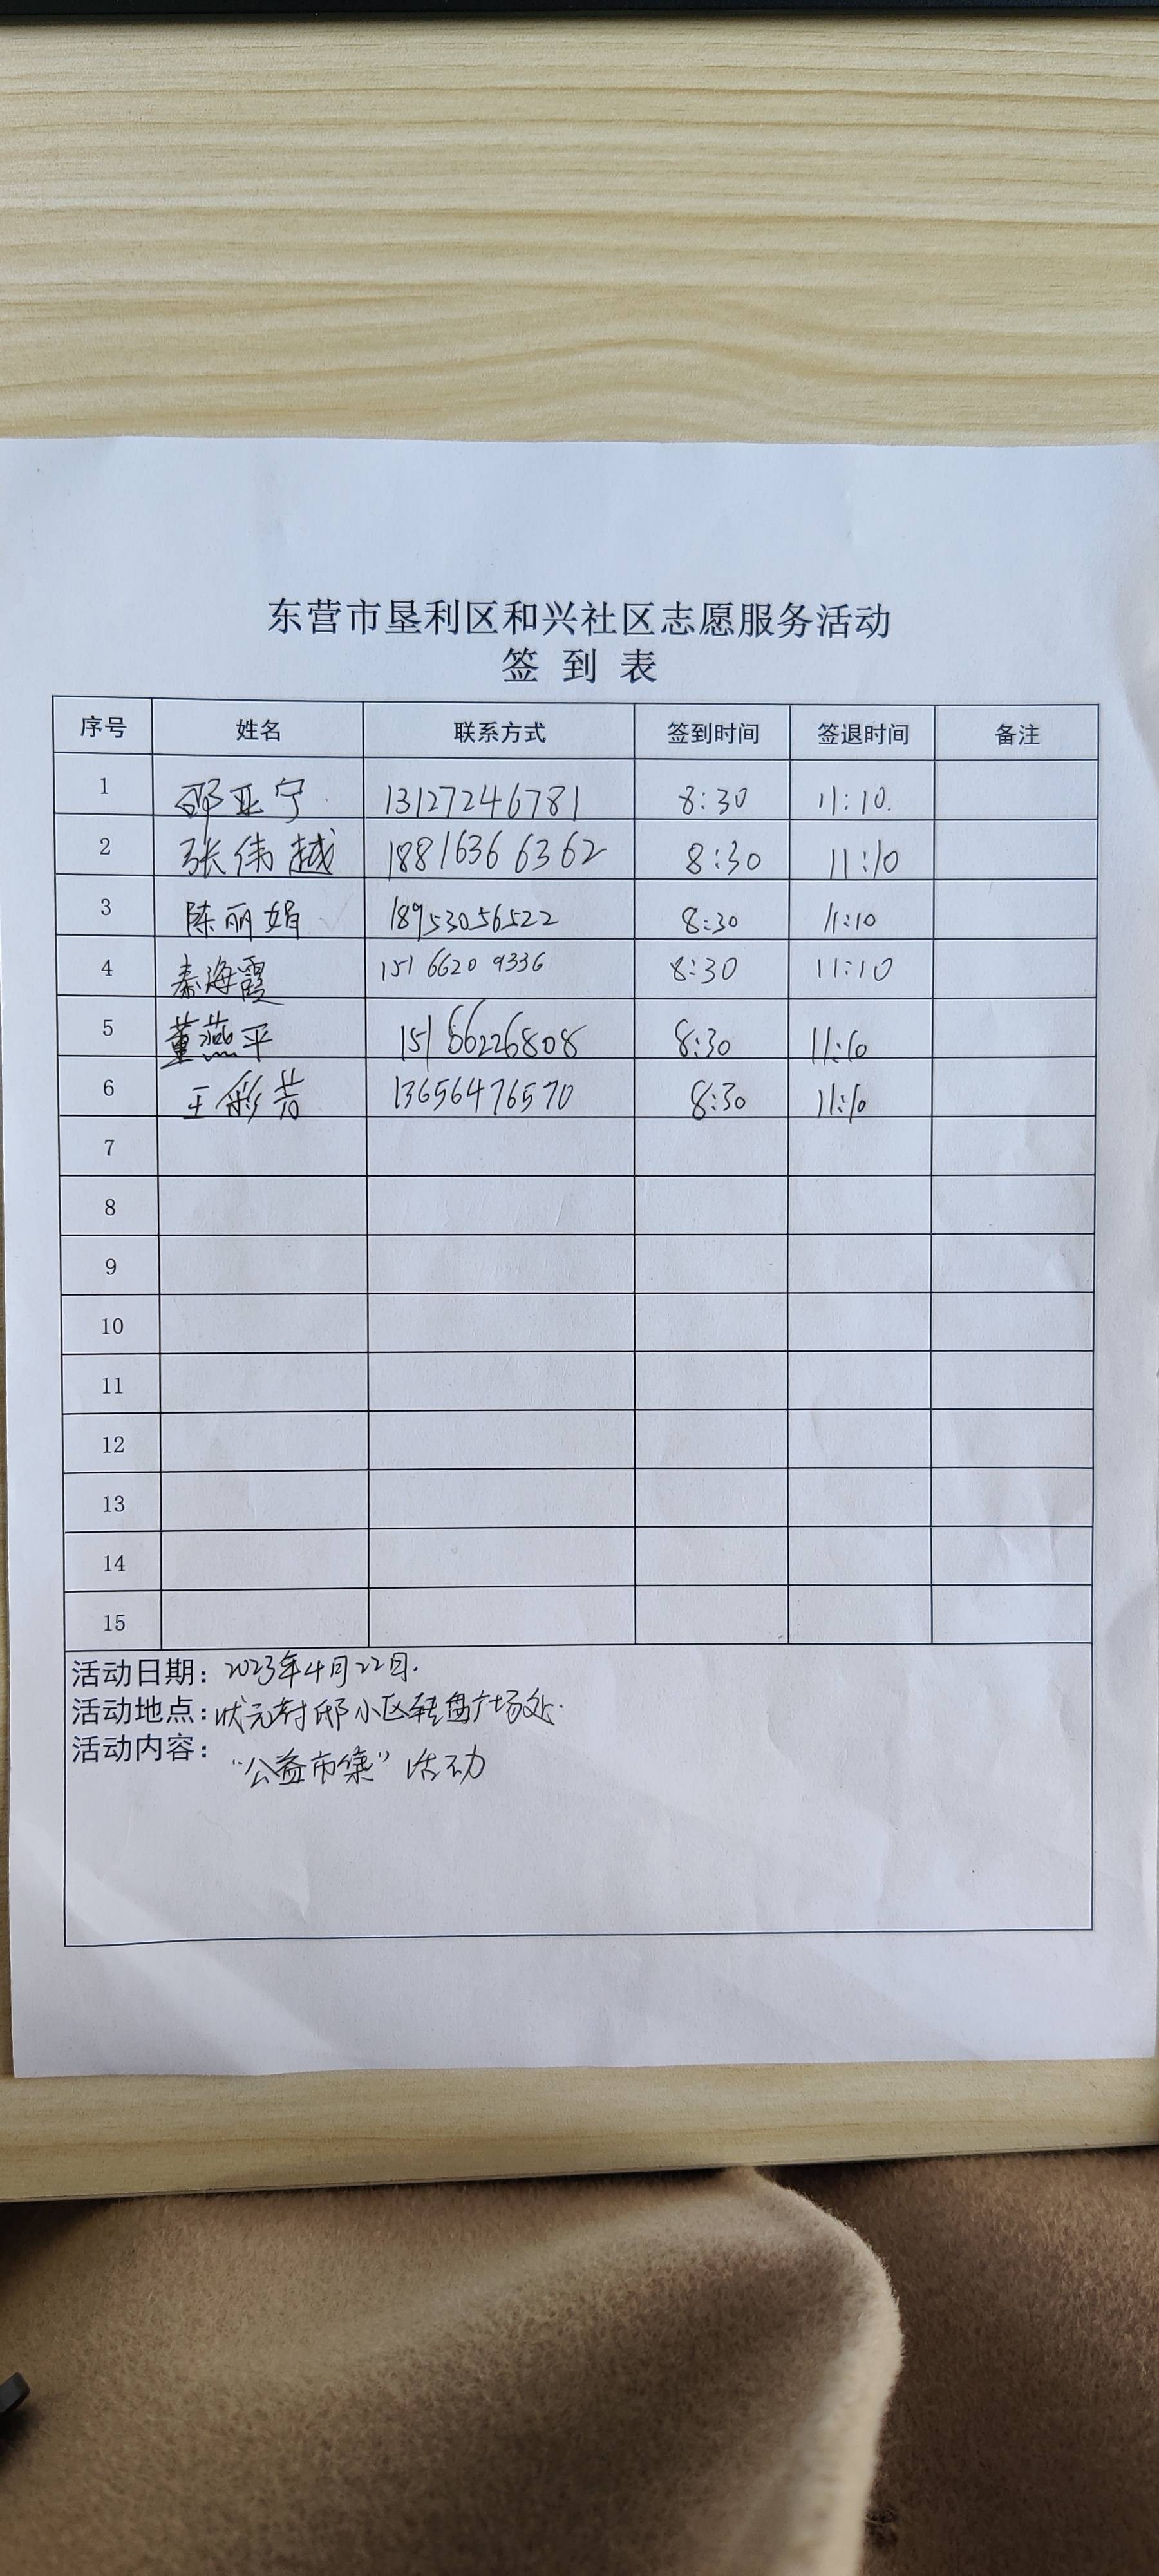 东营市垦利区和兴社区志愿服务活动
签到表
序号 姓名 联系方式 签到时间 签退时间 备注
1 邵亚宁 13127246781 8:30 11:10.
2 张伟越 18816366362 8:30 11:10
3 陈丽娟 18953056522 8:30 11:10
4 秦海霞 151 6620 9336 8:30 11:10
5 董燕平 15166226808 8:30 11:10
6 王彩芳 13656476570 8:30 11:10
7
8
9
10
11
12
13
14
15
活动日期：2023年4月22日.
活动地点：状元村邸小区转盘广场处.
活动内容：“公益市集”活动